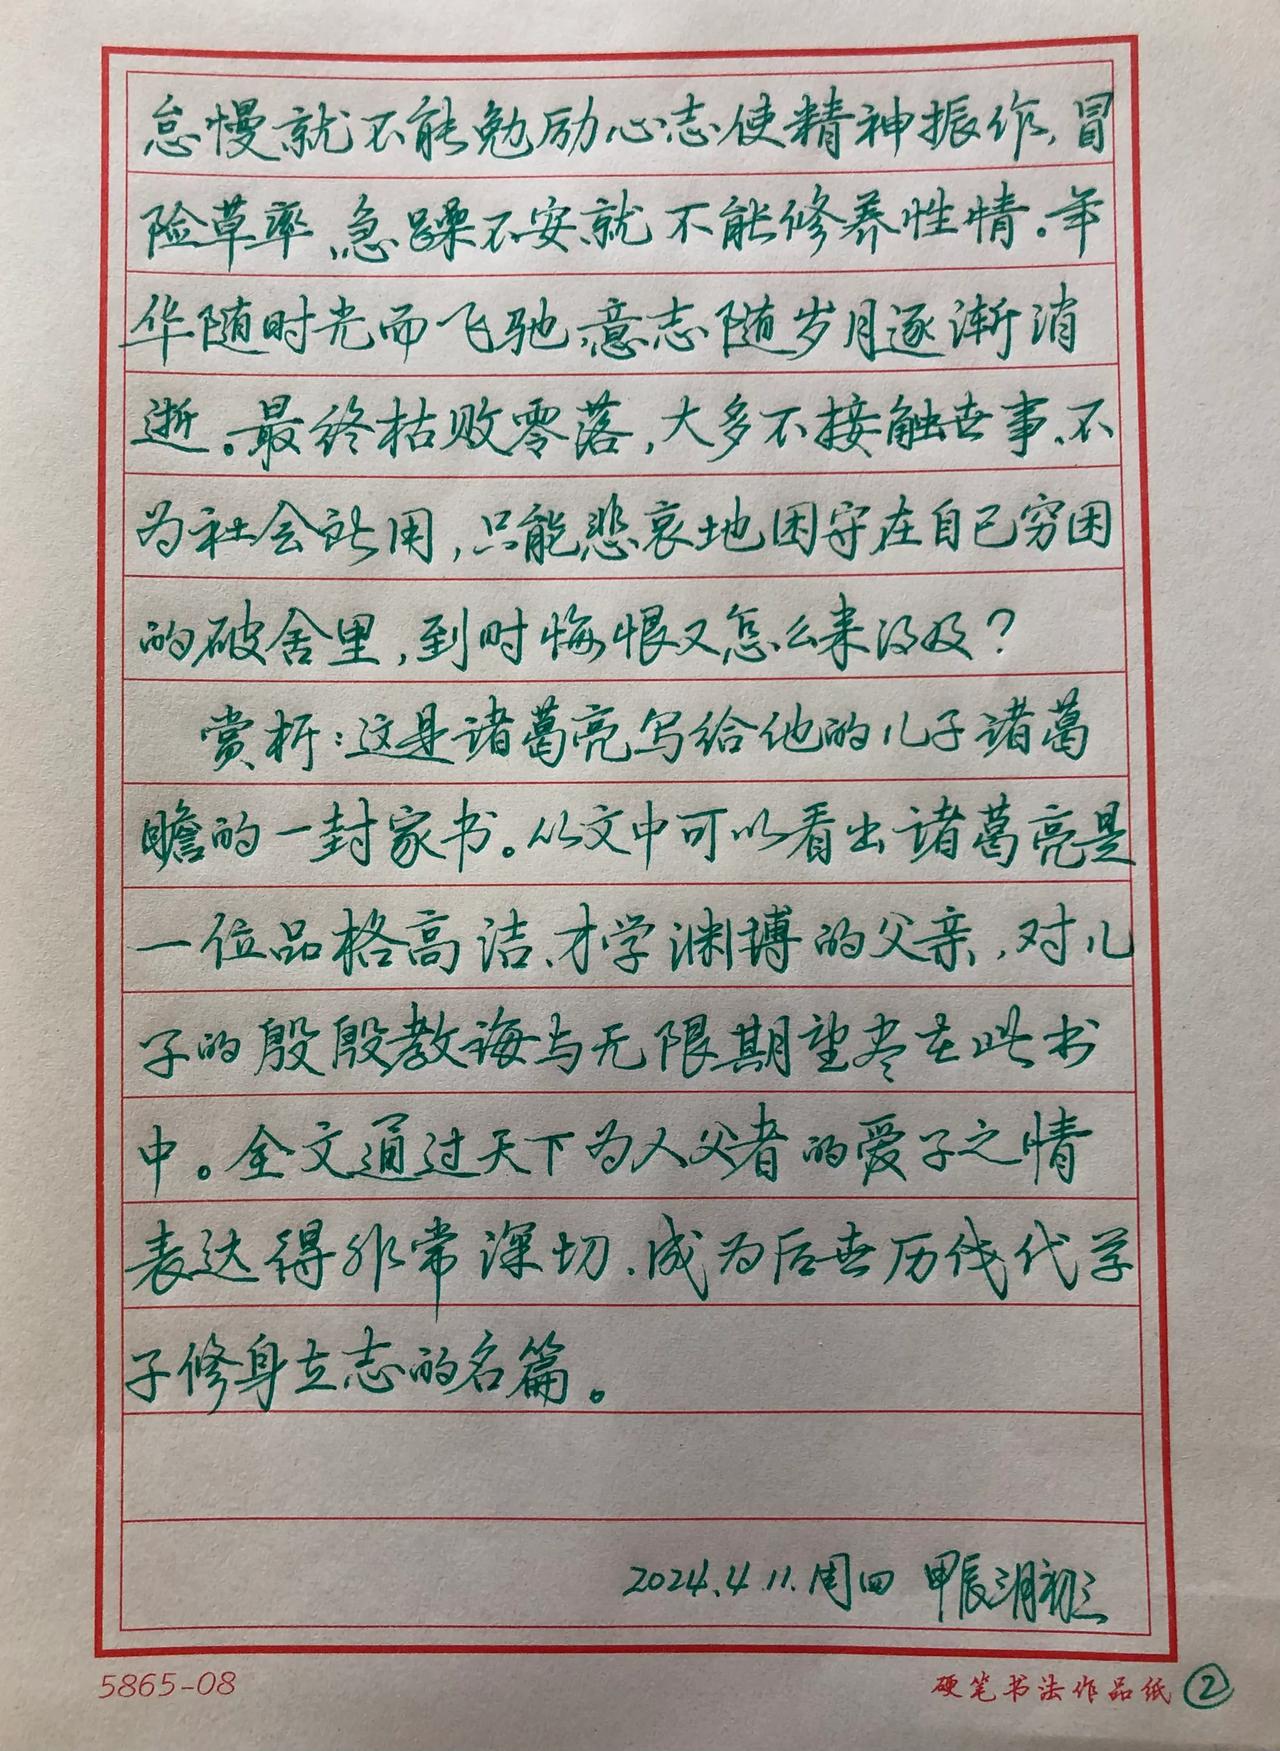 怠慢就不能勉励心志使精神振作,冒
险草率、急躁不安就不能修养性情。年
华随时光而飞驰,意志随岁月逐渐消
逝。最终枯败零落,大多不接触世事、不
为社会所用,只能悲哀地困守在自己穷困
的破舍里,到时悔恨又怎么来得及?
赏析:这是诸葛亮写给他的儿子诸葛
瞻的一封家书。从文中可以看出诸葛亮是
一位品格高洁、才学渊博的父亲,对儿
子的殷殷教诲与无限期望尽在此书
中。全文通过天下为人父者的爱子之情
表达得非常深切、成为后世历代学
子修身立志的名篇。
2024.4.11.周四 甲辰三月初三
5865-08 硬笔书法作品纸 ②